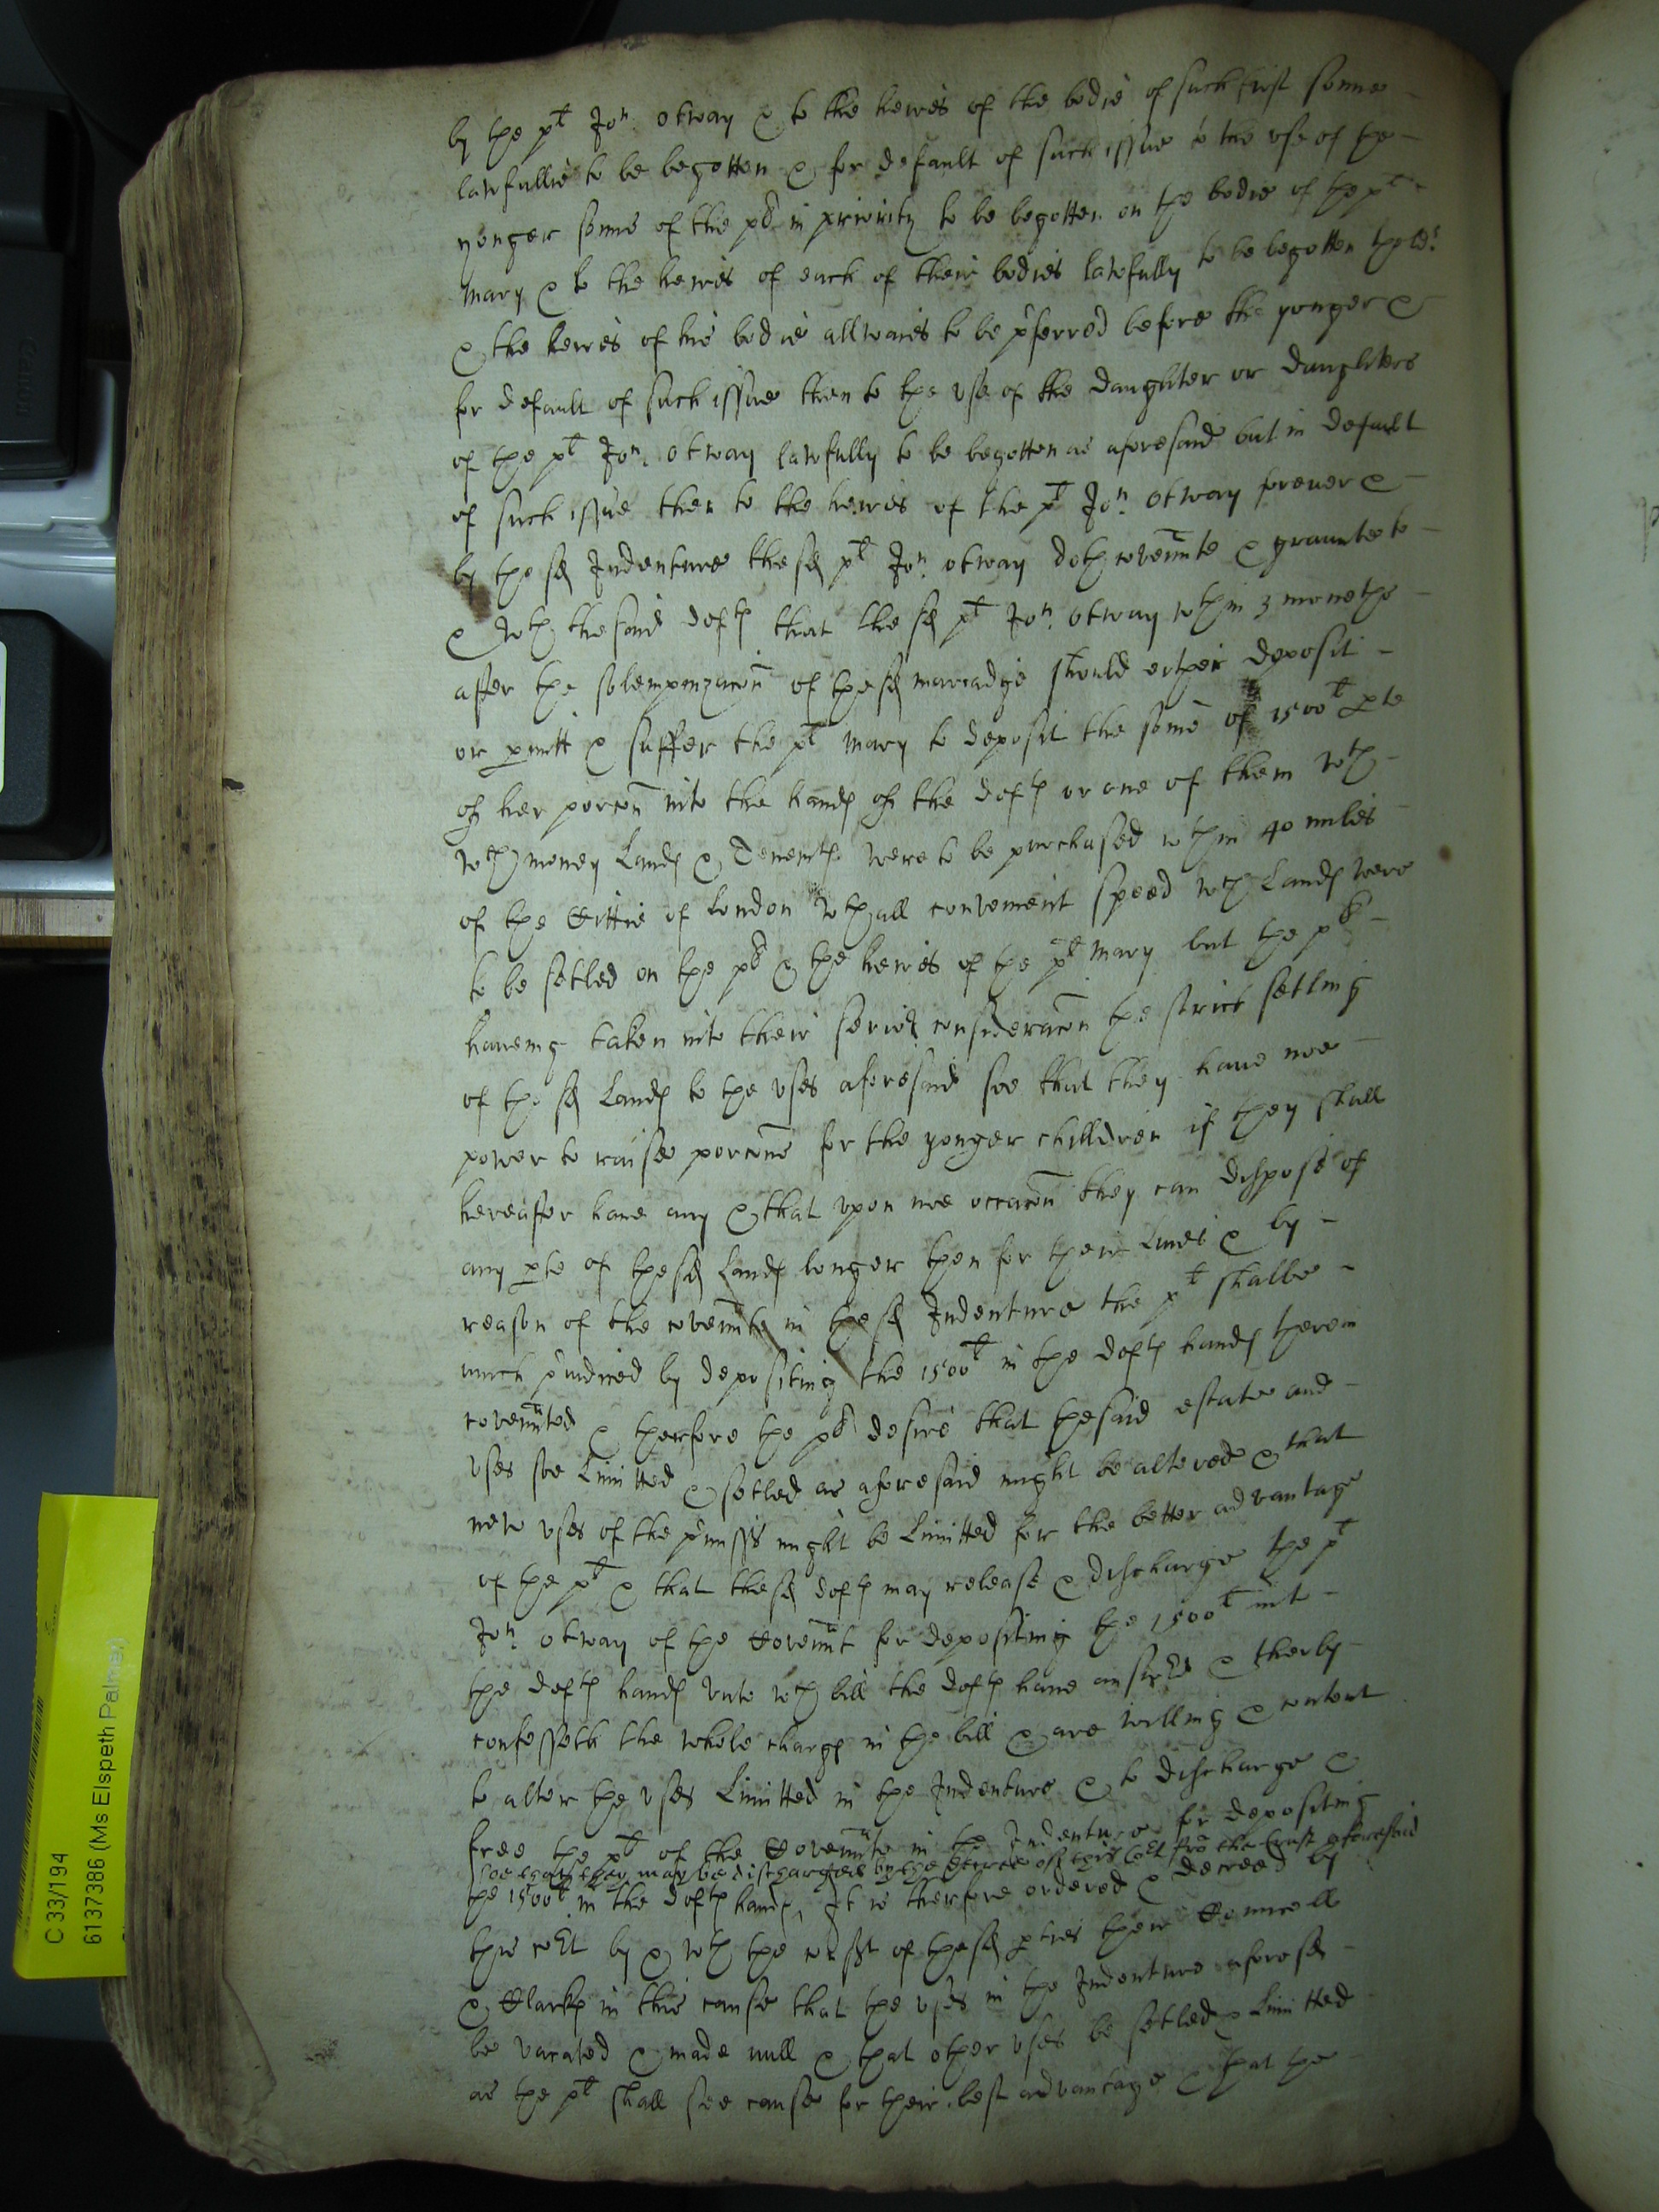 by the plt Jon. Otway & to the heires of the bodie of such first sonne
lawfullie to be begotten & for default of such issue to the use of the
yonger sonne of the pls in priority to be begotten on the bodie of the plt
Mary & to the heires of each of their bodies lawfully to be begotten the eldr
& the heires of his bodie allwaies to be pferred before the yonger &
for default of such issue then to the use of the daughter or daughters
of the plt Jon. Otway lawfully to be begotten as aforesaid but in default
of such issue then to the heires of the plt Jon. Otway forever &
by the sd Indenture the sd plt Jon. Otway doth covennte & graunte to
& wth the said defts that the sd plt Jon. Otway wthin 3 moneths
after the solempnizacon of the sd marriadge should either deposit
or pmitt & suffer the plt Mary to deposit the some of 1500l pte
of her porcon into the hands of the defts or one of them wth
wch money Lands & Tenemts were to be purchased wthin 40 miles
of the Cittie of London wth all convenient speed wch Lands were
to be setled on the pls & the heires of the plt Mary but the pls
haveing taken into their serious consideracon the strict setling
of the sd Lands to the uses aforesaid soe that they have noe
power to raise porcons for the yonger children if they shall
hereafter have any & that upon noe occacon they can dispose of
any pte of the sd Lands longer then for their Lives & by
reason of the covennte in the sd Indenture the plt shalbe
much piudiced by depositing the 1500l in the defts hands therein
covennted & therfore the pls desire that the said estate and
uses soe Limitted & setled as aforesaid might be altered & that
new uses of the pmisses might be Limitted for the better advantage
of the plt & that the sd defts may release & discharge the plt
Jon. Otway of the Covennt for depositing the 1500l into
the defts hands unto wch bill the defts have answered & therby
confesseth the whole charge in the bill & are willing & content
to alter the uses Limitted in the Indenture & to discharge &
free the plt of the Covennte in the Indenture for depositing
soe that they may be discharged by the decree of this Cort fro the trust aforesaid
the 1500l in the defts hands, It is therfore ordered & decreed by
this Cort by & wth the consent of the sd pties their Councell
& Clarks in this cause that the uses in the Indenture aforesd
be vacated & made null & that other uses be setled & Limitted
as the plt shall see cause for their best advantage & that the
C 33/194
6137386 (Ms Elspeth Palmer)
Canon